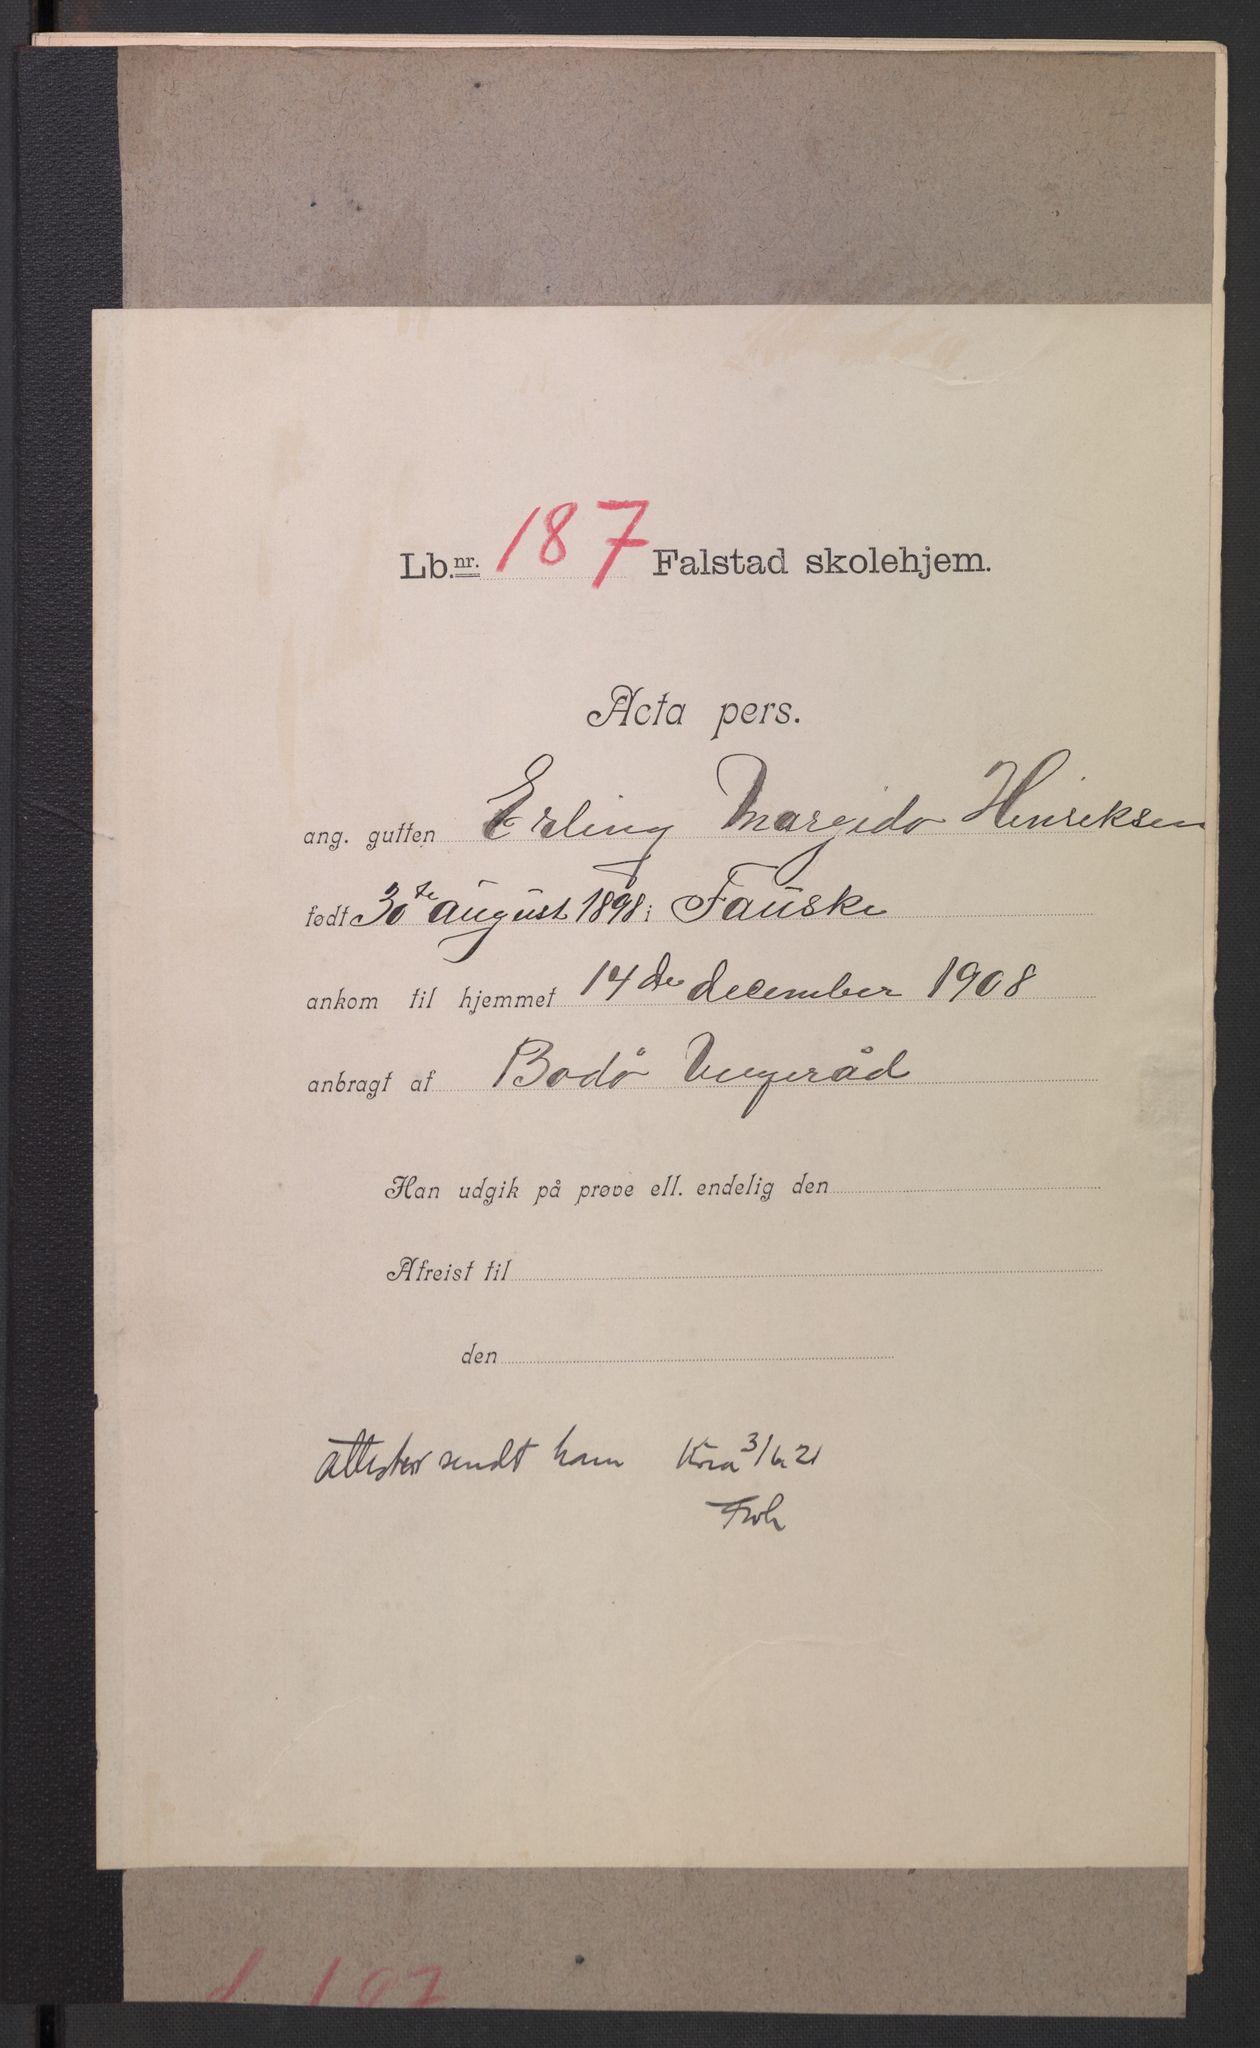 Lb.nr. 187 Falstad skolehjem.
Acta pers.
ang. gutten Erling Margido Henriksen
født 30te august 1898 i Fauske
ankom til hjemmet 14de december 1908
anbragt af Bodø Vergeråd
Han udgik på prøve ell. endelig den
Afreist til
den
attester sendt ham Kra 3/6 21
187